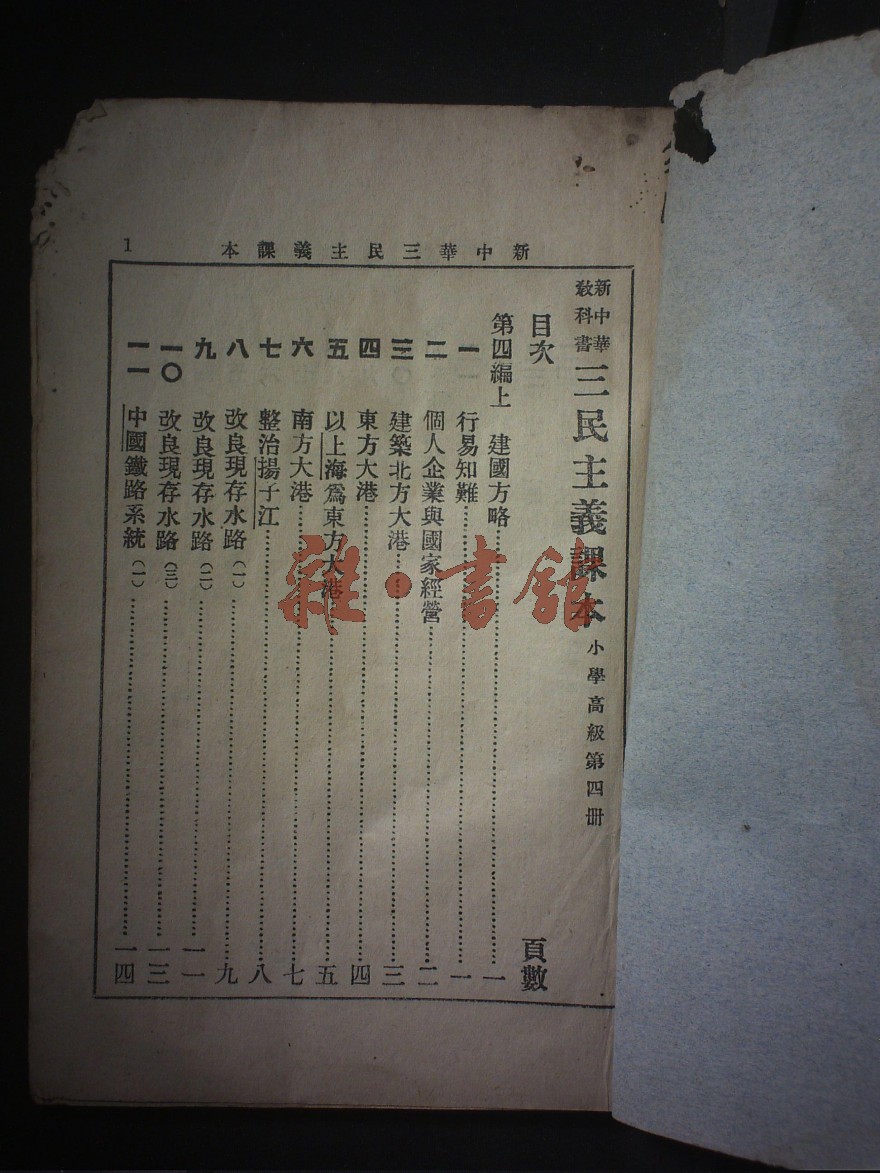 新中華三民主義課本
1
新中華
教科書
三民主義課本 小學高級第四冊
目次 頁數
第四編上 建國方略……一
一 行易知難……一
二 個人企業與國家經營……二
三 建築北方大港……三
四 東方大港……四
五 以上海爲東方大港……五
六 南方大港……七
七 整治揚子江……八
八 改良現存水路(一)……九
九 改良現存水路(二)……一一
一〇 改良現存水路(三)……一三
一一 中國鐵路系統(一)……一四
雜·書館